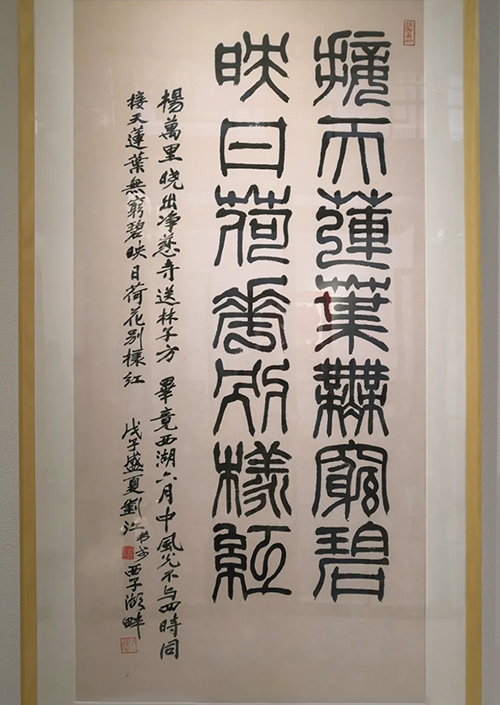 接天蓮葉無窮碧
映日荷花別樣紅
楊萬里曉出淨慈寺送林子方 畢竟西湖六月中風光不与四時同
接天蓮葉無窮碧映日荷花別樣紅 戊子盛夏劉江作於西子湖畔